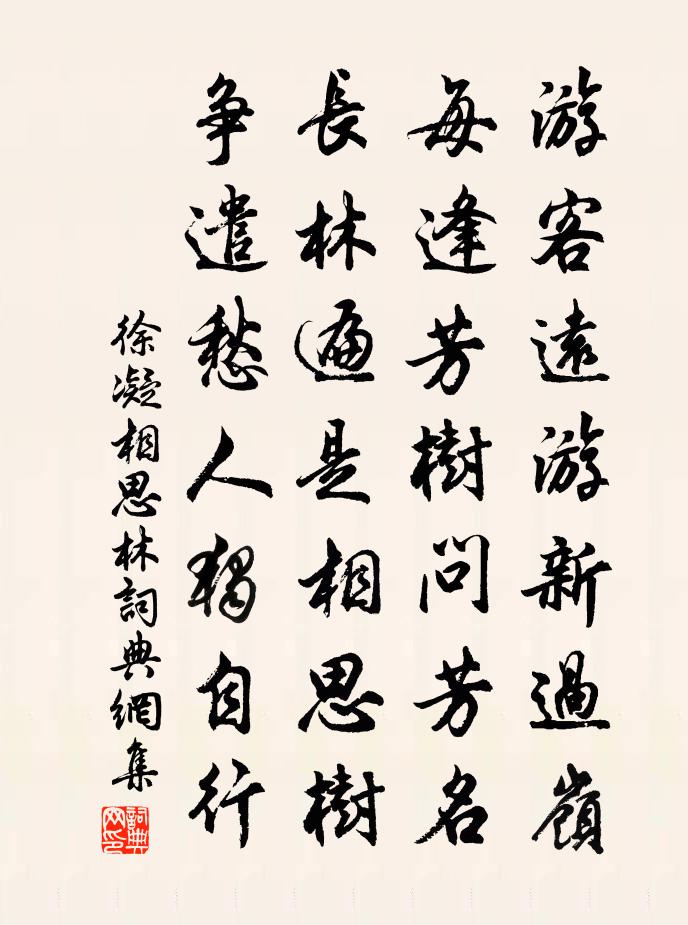 游客遠游新過嶺
每逢芳樹問芳名
長林遍是相思樹
爭遣愁人獨自行
徐凝相思林詞典網集
詞典网印